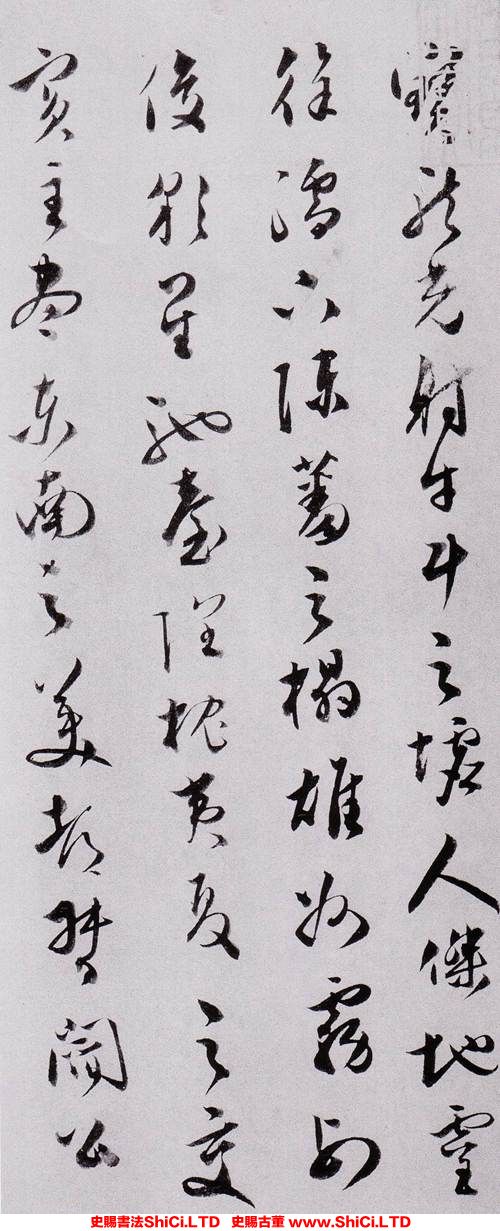 寶龍光射牛斗之墟人傑地靈
徐孺下陳蕃之榻雄州霧列
俊彩星馳臺隍枕夷夏之交
賓主盡東南之美都督閻公
史賜書法ShiCi.LTD 史賜古董 www.ShiCi.LTD